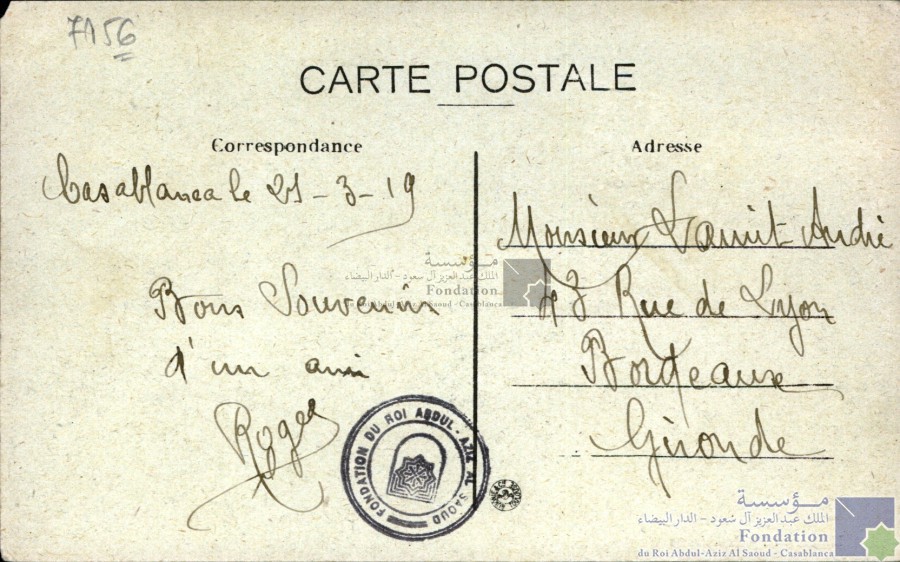 7156
CARTE POSTALE
Correspondance
Adresse
Casablanca le 21-3-19
Bons Souvenirs
d'un ami
Roger
Monsieur Lamit André
43 Rue de Lyon
Bordeaux
Gironde
FONDATION DU ROI ABDUL-AZIZ AL SAOUD
مؤسسة
الملك عبد العزيز آل سعود - الدار البيضاء
Fondation
du Roi Abdul-Aziz Al Saoud - Casablanca
مؤسسة
الملك عبد العزيز آل سعود - الدار البيضاء
Fondation
du Roi Abdul-Aziz Al Saoud - Casablanca